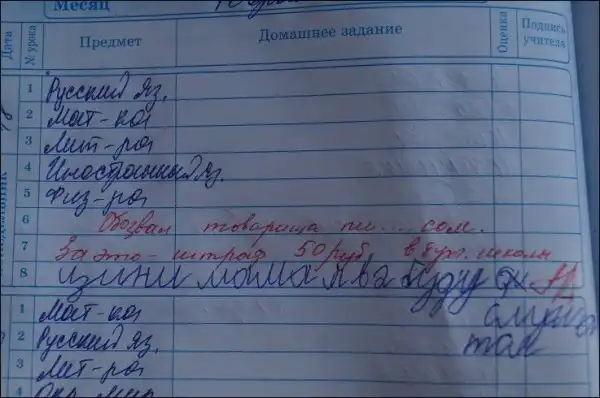 Месяц
Дата № урока Предмет Домашнее задание Оценка Подпись учителя
1 Русский яз.
2 Мат-ка
3 Лит-ра
4 Иностранный яз.
5 Физ-ра
6 Обозвал товарища пи....сом.
7 За это - штраф 50 руб. в бух. школы
8 изини мама я ва буду
слушо
так
1 Мат-ка
2 Русский яз.
3 Лит-ра
4 Окр. мир